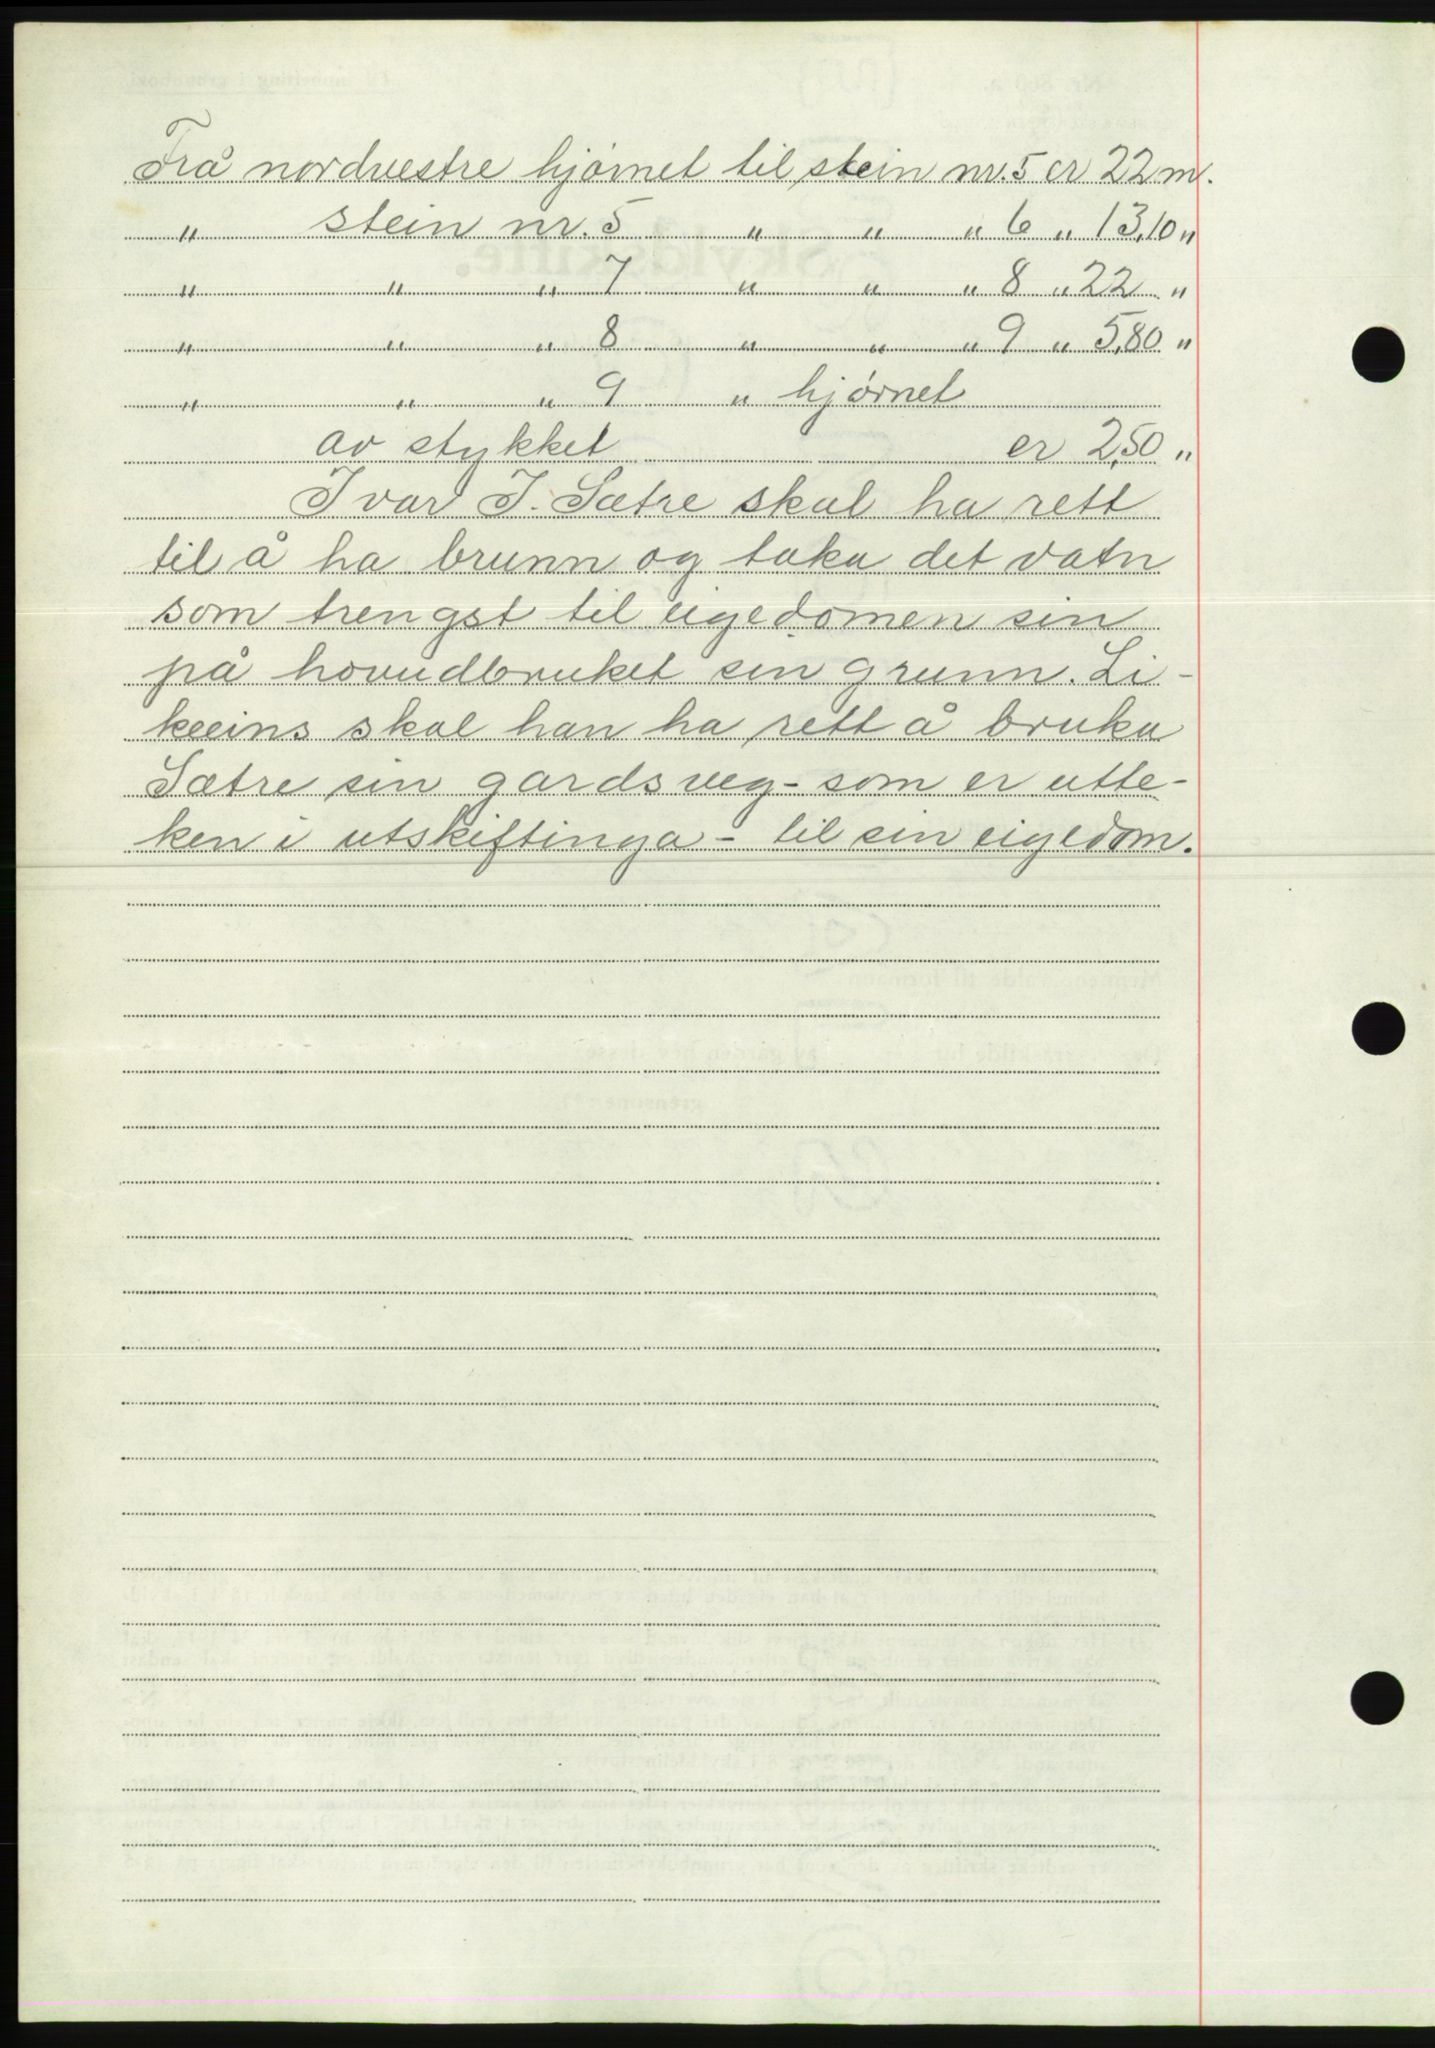 Frå nordvestre hjørnet til stein nr. 5 er 22 m.
" stein nr. 5 " " " 6 " 13,10 "
" " " 7 " " " 8 " 22 "
" " " 8 " " " 9 " 5,80 "
" " " 9 " hjørnet
av stykket er 2,50 "
Ivar I. Sætre skal ha rett
til å ha brunn og taka det vatn
som trengst til eigedomen sin
på hovudbruket sin grunn. Li-
keeins skal han ha rett å bruka
Sætre sin gardsveg - som er utte-
ken i utskiftinga - til sin eigedom.